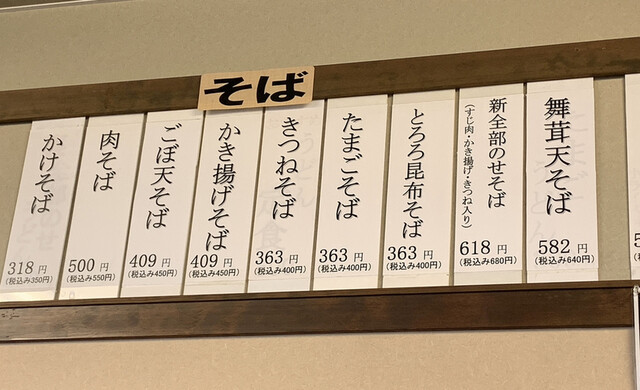 そば
舞茸天そば
582円
(税込み640円)
新全部のせそば
(すじ肉・かき揚げ・きつね入り)
618円
(税込み680円)
とろろ昆布そば
363円
(税込み400円)
たまごそば
363円
(税込み400円)
きつねそば
363円
(税込み400円)
かき揚げそば
409円
(税込み450円)
ごぼ天そば
409円
(税込み450円)
肉そば
500円
(税込み550円)
かけそば
318円
(税込み350円)